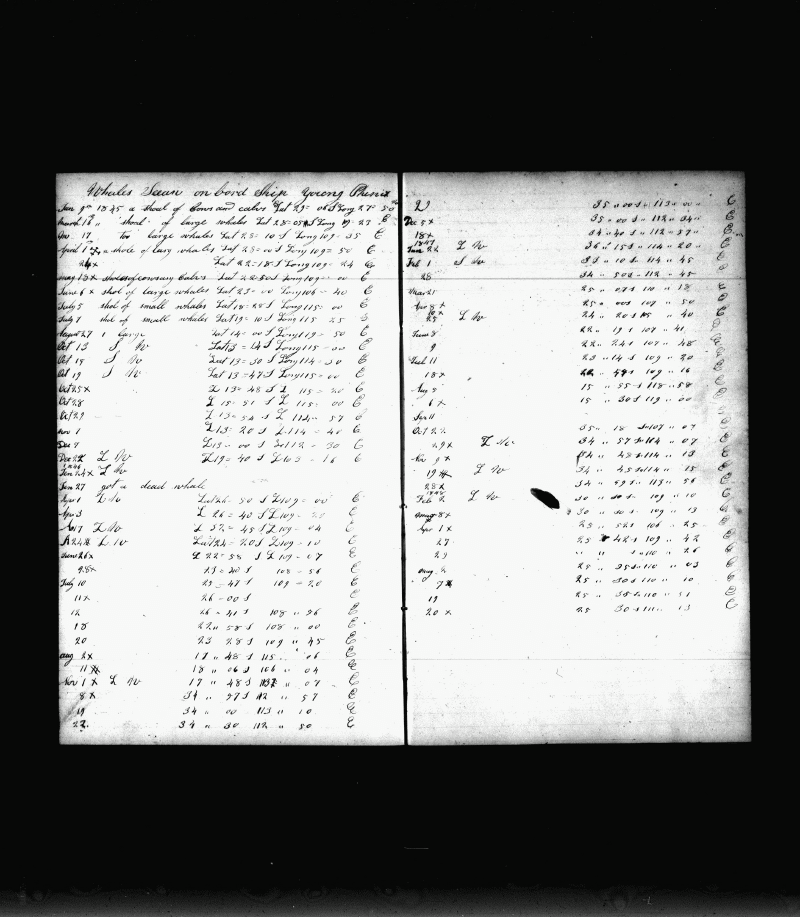 Whales Seean on bord Ship Young Phenix
Jan 9th 1845 a shoal of Cows and calvs Lat 23 = 06 S Long 27 = 50
March 16 " shoal of large whales Lat 23 = 05 S Long 109 = 23 E
Do 17 two large whales Lat 23 = 10 S Long 109 = 35 E
April 1 x a shole of larg whales Lat 23 = 00 S Long 109 = 50 E
24 x Lat 22 = 18 S Long 109 = 24 E
may 13 x Lat 22 = 50 S Long 109 = 00 E
June 6 x shol of large whales Lat 23 = 00 Long 106 = 40 E
July 5 shol of small whales Lat 18 = 28 S Long 115 = 00 E
July 7 shol of small whales Lat 19 = 10 S Long 115 25 E
August 27 1 large Lat 14 = 00 S Long 119 = 50 E
Oct 13 S W Lat 13 = 14 S Long 115 = 00 E
Oct 15 S W Lat 13 = 30 S Long 114 = 30 E
Oct 19 S W Lat 13 = 47 S Long 115 = 00 E
Oct 25 x L 13 = 48 S L 115 = 20 E
Oct 28 L 15 = 51 S L 115 = 00 E
Oct 29 L 13 = 54 S L 114 = 57 E
nov 1 L 13 = 20 S L 114 = 40 E
Dec 7 L 13 = 00 S L 112 = 30 E
Dec 22 L W L 19 = 40 S L 103 = 16 E
1846
Jan 24 x L W
Jan 27 got a dead whale
Apr 1 L W Lat 26 = 50 S L 109 = 00 E
Apr 3 L 26 = 40 S L 109 = 20 E
A 17 L W L 32 = 45 S L 109 = 04 E
A 24 L W Lat 24 = 20 S L 109 = 10 E
June 26 x L 22 = 58 S L 109 = 07 E
28 x 23 = 40 S 108 = 56 E
July 10 25 = 41 S 109 = 20 E
11 x 26 = 00 S E
12 26 = 41 S 108 " 36 E
18 22 " 58 S 108 " 00 E
20 23 28 S 109 " 45 E
aug 2 x 17 " 48 S 115 " 06 E
11 18 " 06 S 106 " 04 E
Nov 1 x L W 17 " 48 S 113 " 07 E
8 x 34 " 57 S 112 " 57 E
19 34 " 00 113 " 10 E
22 34 " 30 112 " 50 E
29 35 " 00 S " 113 " 00 " E
Dec 5 x 35 " 00 S " 112 " 34 " E
18 x 34 " 40 S " 112 " 37 " E
1847
Jan 22 L W 36 " 15 S " 114 " 20 " E
Feb 1 S W 33 " 10 S " 114 " 45 E
28 34 " 50 S " 112 " 45 E
Mar 25 25 " 07 S 110 " 18 E
Apr 8 x 25 " 00 S 107 " 50 E
25 L W 24 " 20 S " 40 E
June 8 22 " 19 S 107 " 41 E
9 22 " 24 S 107 " 48 E
July 11 23 " 14 S 109 " 20 E
18 x 109 " 16 E
Aug 5 15 " 55 S 118 " 58 E
6 x 15 " 30 S 119 " 00 E
Sep 11
Oct 22 35 " 18 S 107 " 07 E
29 x L W 34 " 57 S 114 " 07 E
Nov 9 x 34 " 48 S 114 " 13 E
19 L W 34 " 45 S 114 " 15 E
28 x 34 " 59 S 113 " 56 E
1848
Feb 2 L W 30 " 30 S " 109 " 10 E
8 x 30 " 30 S " 109 " 13 E
Apr 1 x 25 " 52 S 106 " 25 E
27 25 " 42 S 109 " 42 E
29 " " S 110 " 26 E
may 2 25 " 35 S 110 " 03 E
7 25 " 30 S 110 " 10 E
19 25 " 38 S 110 " 51 E
20 x 25 " 30 S 111 " 13 E